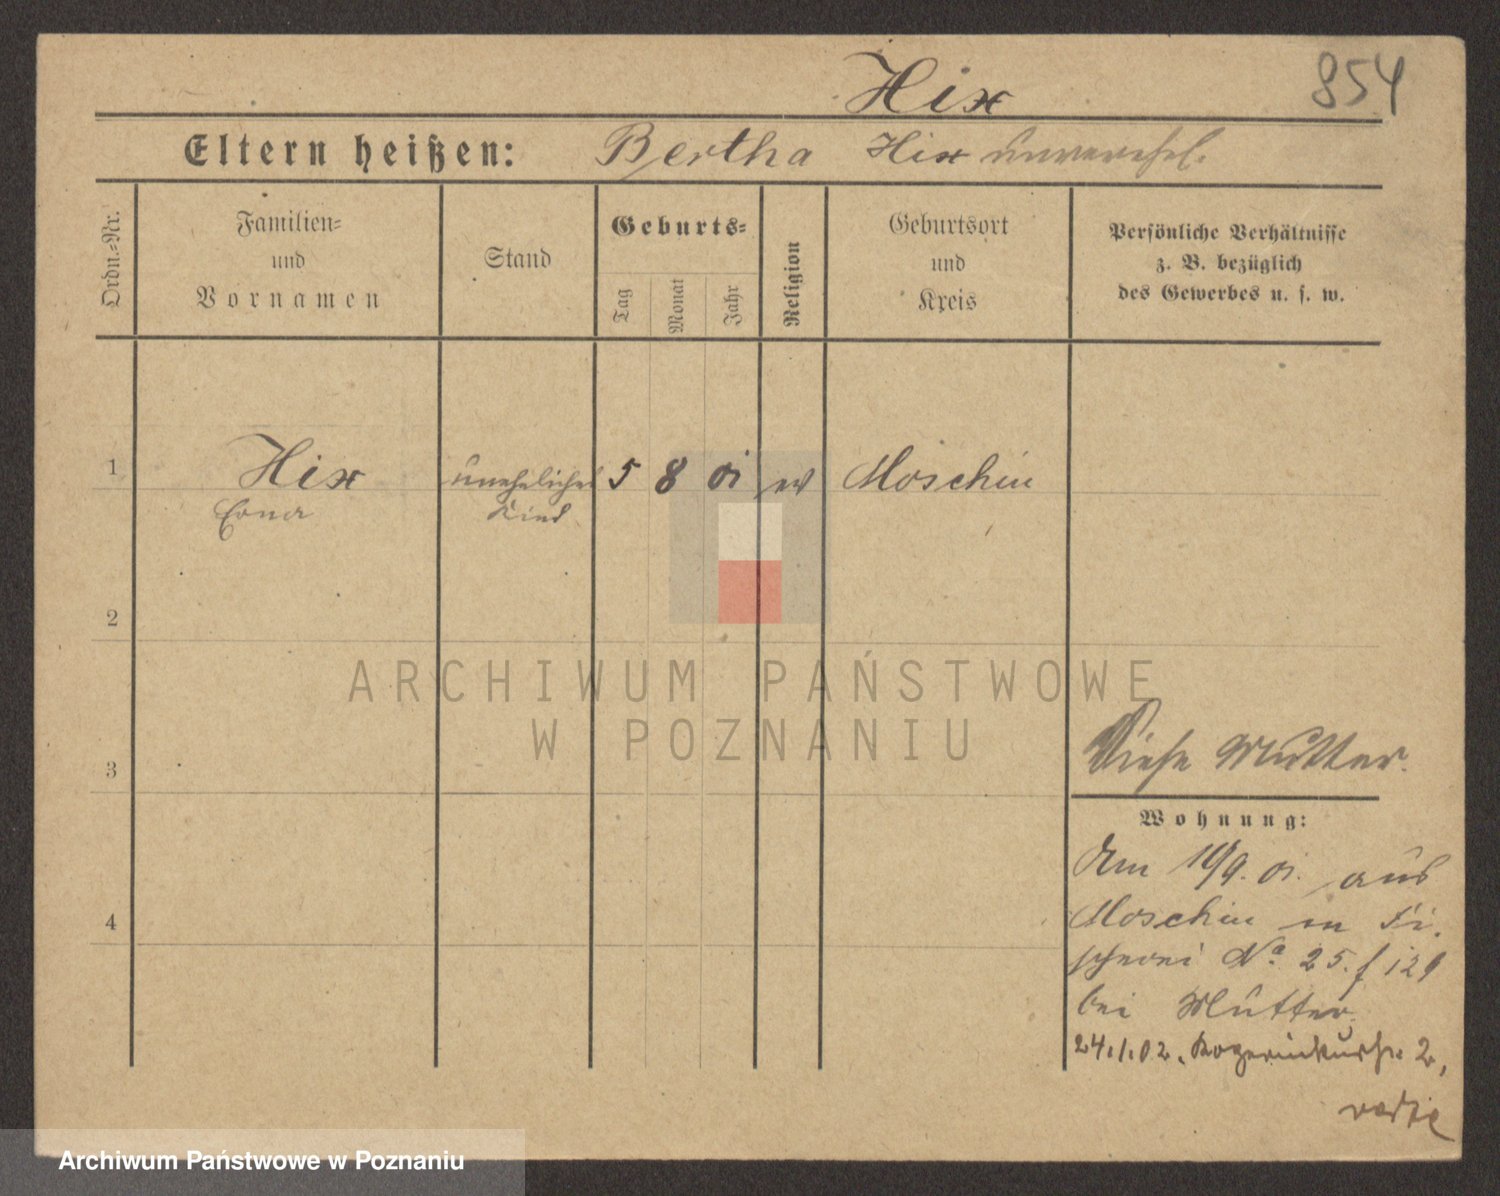 Hix 854
Eltern heißen: Bertha Hix unverehel.
Ordn.=Nr.
Familien=
und
Vornamen
Stand
Geburts=
Tag
Monat
Jahr
Religion
Geburtsort
und
Kreis
Persönliche Verhältnisse
z. B. bezüglich
des Gewerbes u. s. w.
1 Hix uneheliches 5 8 01 ev Moschin
Erna Kind
2
ARCHIWUM PAŃSTWOWE
W POZNANIU
3
Siehe Mutter.
Wohnung:
Am 10/9. 01. aus
Moschin in Fi-
scherei No 25. f 129
bei Mutter
4
24.1.02. 2,
Archiwum Państwowe w Poznaniu